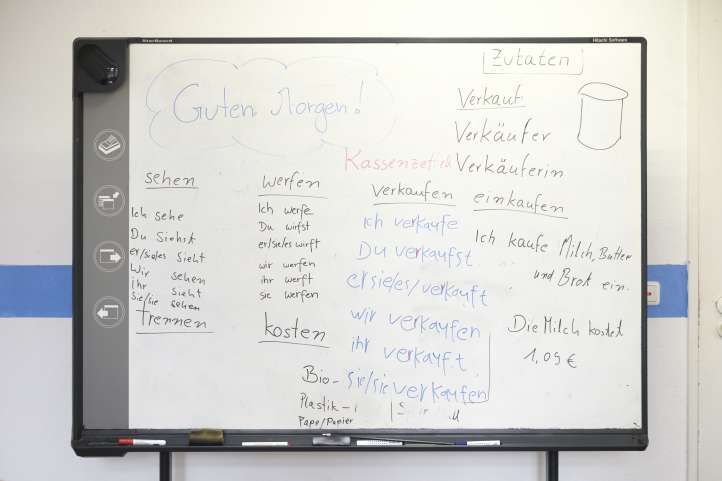 StarBoard
Hitachi Software
Zutaten
Guten Morgen!
Verkauf
Verkäufer
Kassenzettel
Verkäuferin
sehen
Ich sehe
Du Siehst
er/sie/es Sieht
Wir sehen
ihr Sieht
Sie/sie sehen
trennen
werfen
Ich werfe
Du wirfst
er/sie/es wirft
wir werfen
ihr werft
sie werfen
kosten
verkaufen
Ich verkaufe
Du verkaufst
er sie/es/verkauft
wir verkaufen
ihr verkauft
Sie/sie verkaufen
einkaufen
Ich kaufe Milch, Butter
und Brot ein.
Die Milch kostet
1,09 €
Bio-
Plastik-
Pape/Papier